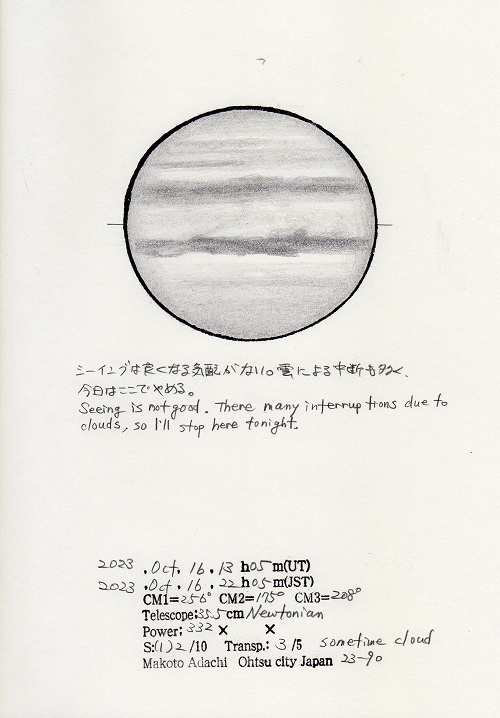 シーイングは良くなる気配がない。雲による中断も多く、
今日はここでやめる。
Seeing is not good. There many interruptions due to
clouds, so I'll stop here tonight.
2023 . Oct. 16. 13 h05 m(UT)
2023 . Oct. 16. 22 h05 m(JST)
CM1=256° CM2=175° CM3=208°
Telescope:35.5cm Newtonian
Power: 332 × ×
S:(1)2/10 Transp.: 3/5 sometime cloud
Makoto Adachi Ohtsu city Japan 23-90